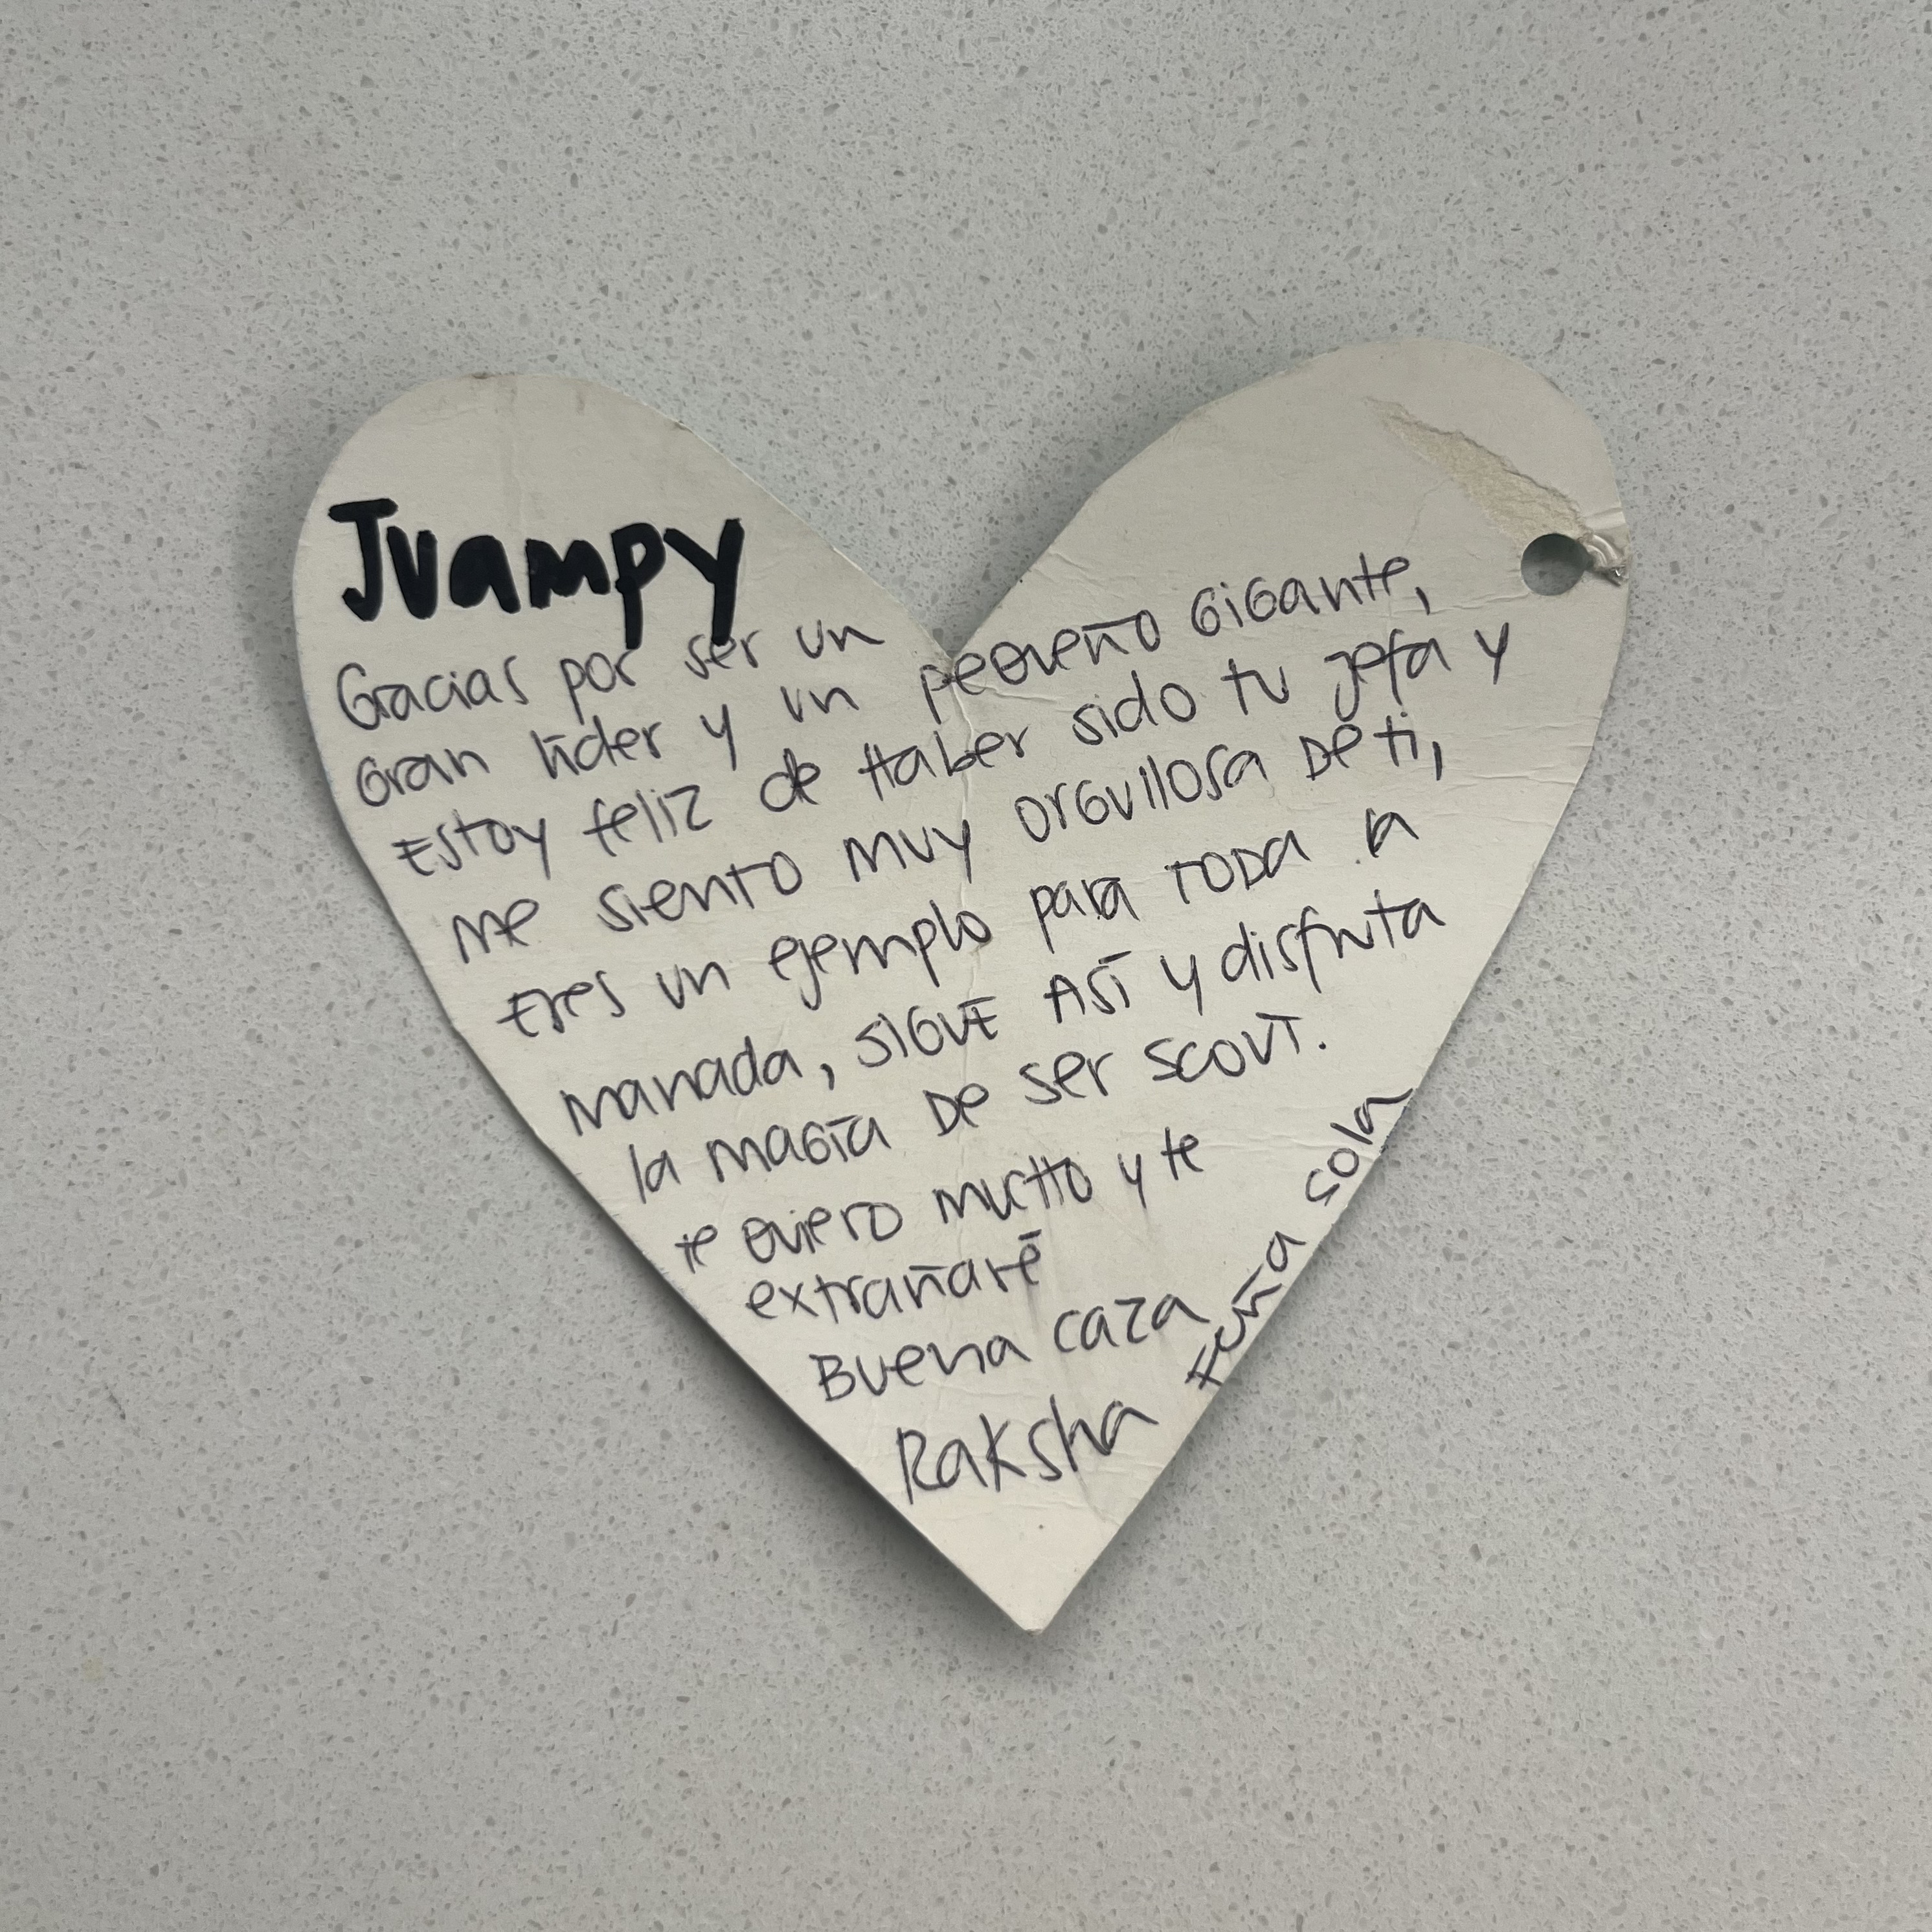 Juampy
Gracias por ser un
Gran líder y un pequeño Gigante,
Estoy feliz de Haber sido tu jefa y
me siento muy orgullosa De ti,
Eres un ejemplo para TODA la
manada, SIGUE ASÍ y disfruta
la magia De ser scout.
te quiero mucho y te
extrañaré
Buena caza
Raksha
Feña Sola